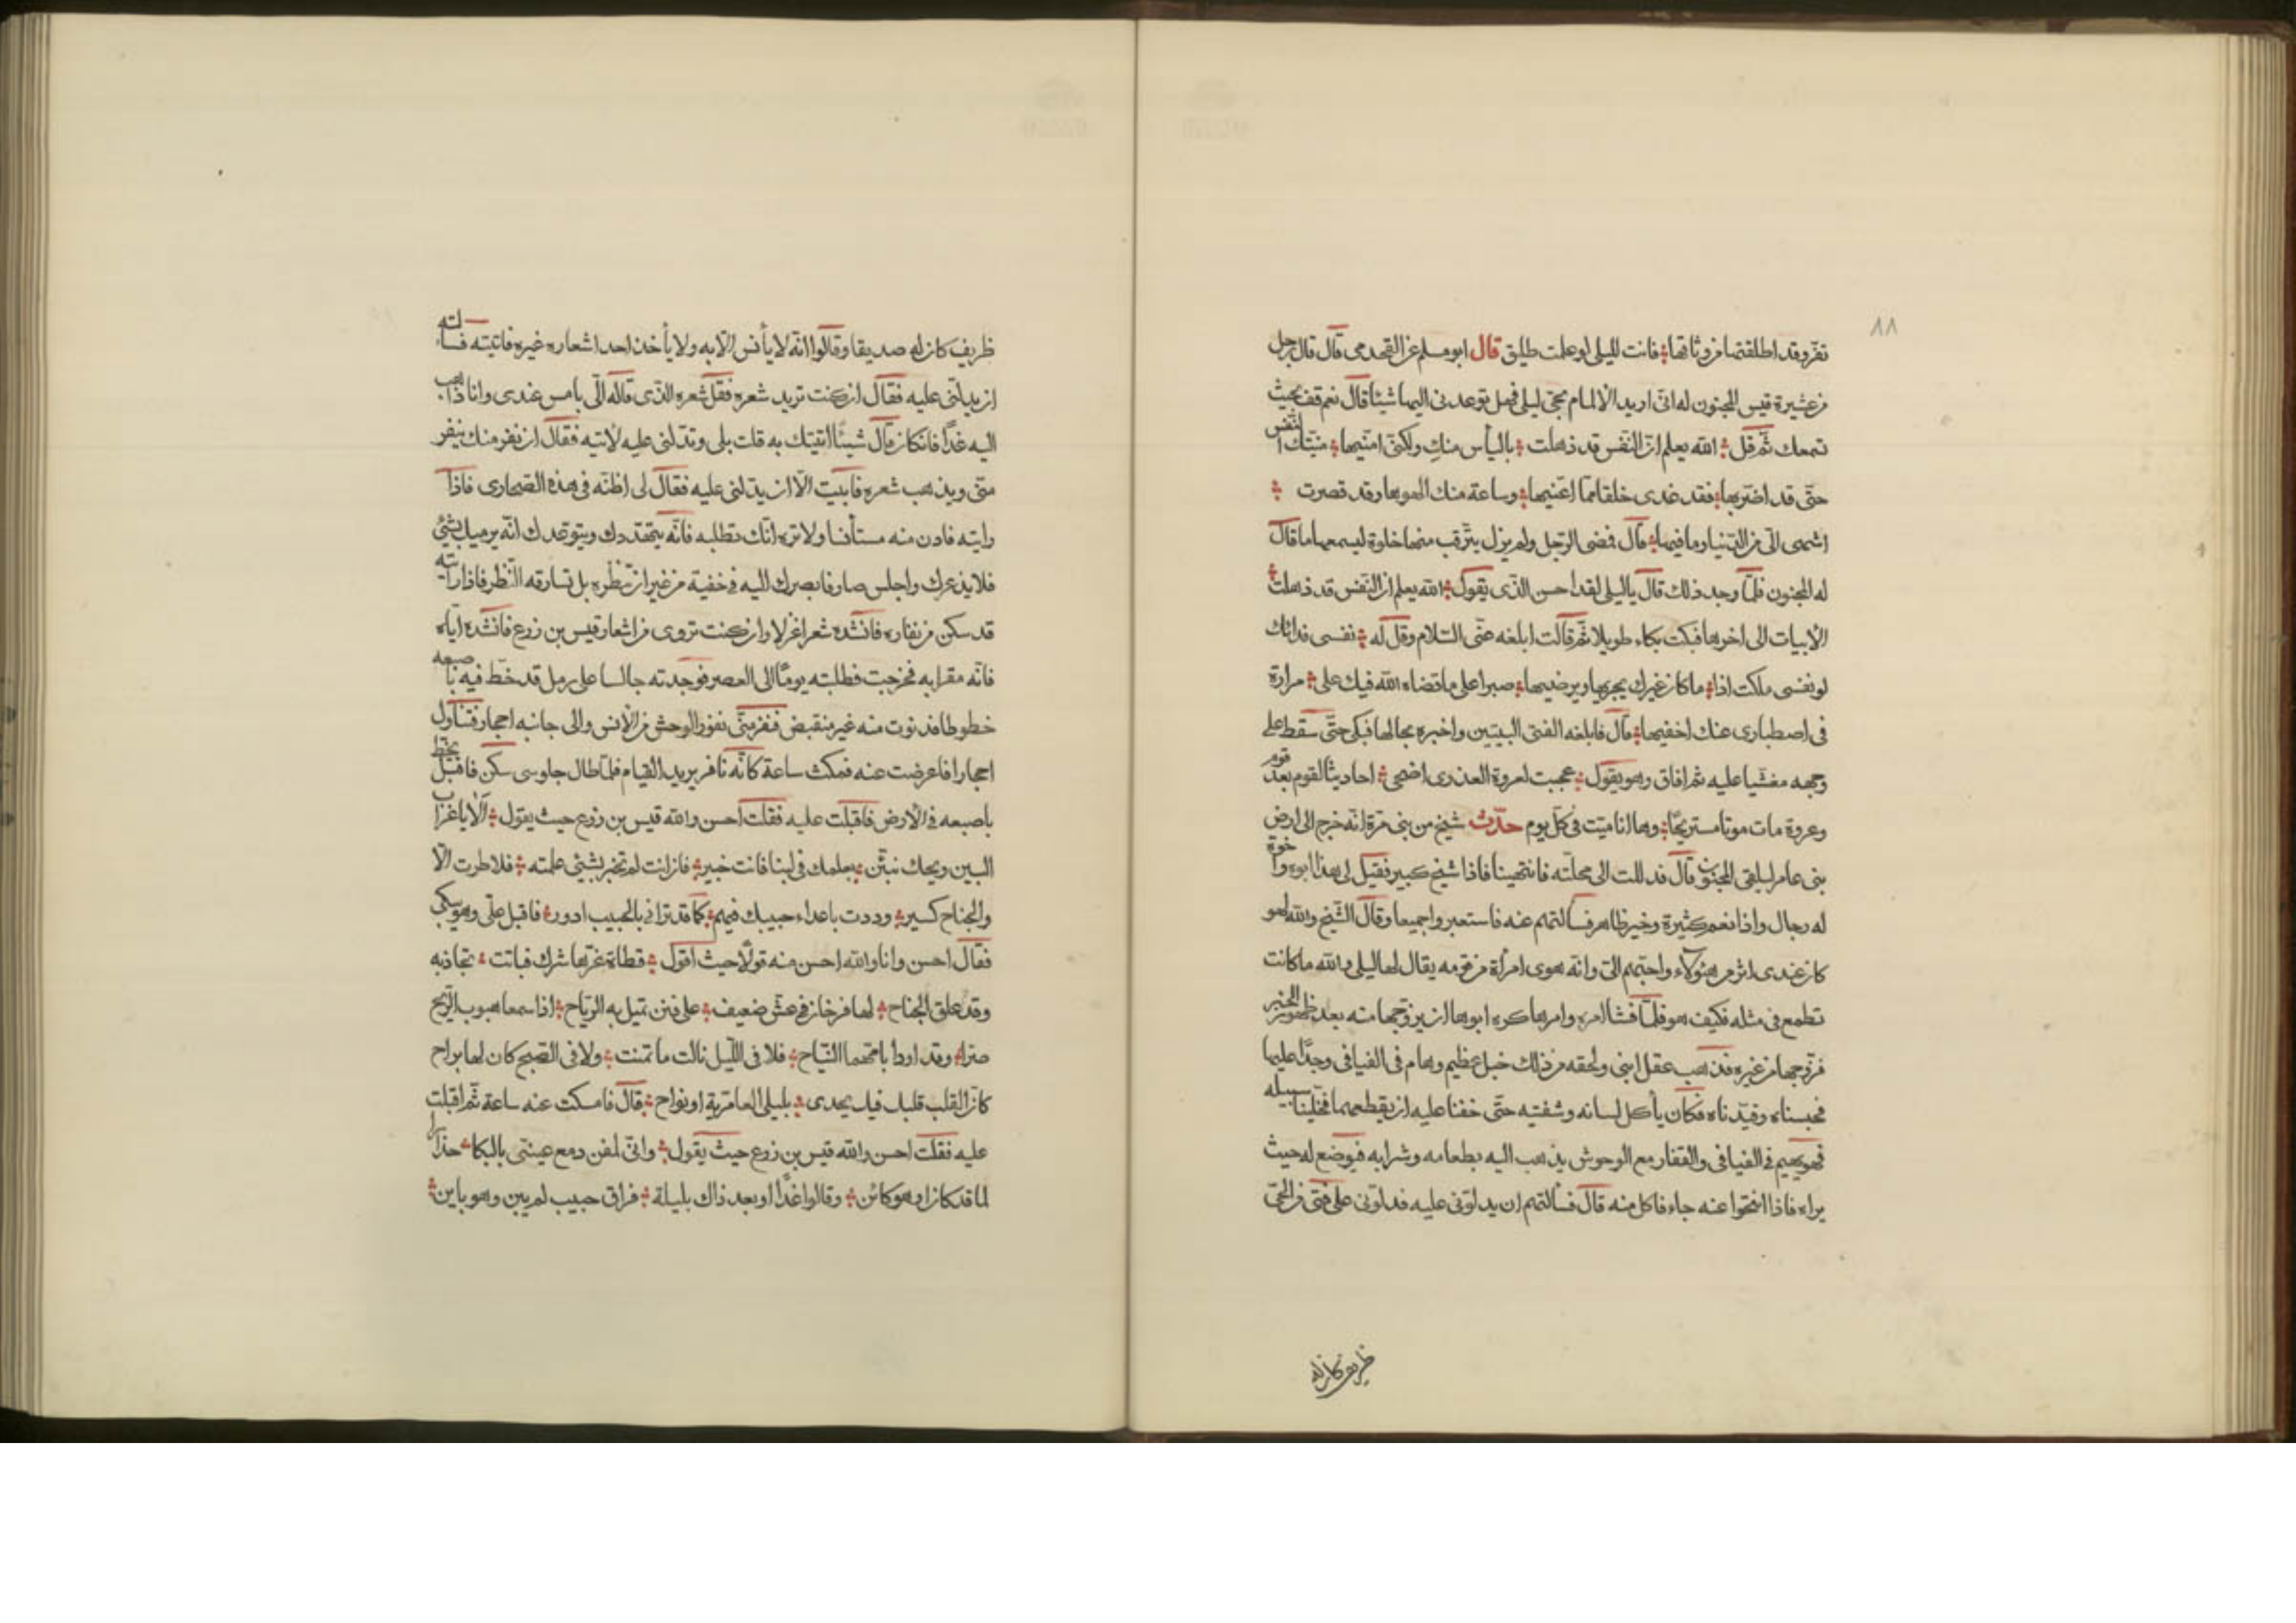 ٨٨
تفر وقد اطلقتها من وثاقها فانت لليلى لو علمت طليق قال ابو مسلم عن القحدمى قال قال رجل
من عشيرة قيس المجنون له انّى اريد الالمام بحىّ ليلى فهل توعدنى اليها شيئا قال نعم قف بحيث
تسمعك ثمّ قل الله يعلم انّ النّفس قد ذهلت باليأس منكِ ولكنّى امنّيها منّيتك النّفس
حتّى قد اضرّ بها فقد غدى خلقا ممّا اعنّيها وساعة منك الهوها وقد قصرت
اشهى الىّ من الدّنيا وما فيها قال فمضى الرّجل ولم يزل يترّقب منها خلوة ليسمعها ما قال
له المجنون فلمّا وجد ذلك قال يا ليلى لقد احسن الّذى يقول الله يعلم ان النّفس قد ذهلت
الأبيات الى اخرها فبكت بكاء طويلا ثمّ قالت ابلغه عنّى السّلام وقل له نفسى فدائك
لو نفسى ملكت اذا ما كان غيرك يجزيها ويرضيها صبرا على ما قضاه الله فيك على مرارة
فى اصطبارى عنك اخفيها قال فابلغه الفتى البيتين واخبره بحالها فبكى حتّى سقط على
وجهه مغشيا عليه ثم افاق وهو يقول عجبت لعروة العذرى اضحى احاديثا لقوم بعد قوم
وعروة مات موتا مستريحًا وها انا ميّت فى كلّ يوم حدّث شيخ من بنى مرّة انّه خرج الى ارض
بنى عامر ليلقى المجنون قال فدللت الى محلّته فانتحينا فاذا شيخ كبير فقيل لى هذا ابوه واخوة
له رجال واذا نعم كثيرة وخير ظاهر فسألتهم عنه فاستعبروا جميعا وقال الشّيخ والله لهو
كان عندى اثر من هؤلاء واحبّهم الىّ وانّه هوى امرأة من قومه يقال لها ليلى والله ما كانت
تطمع فى مثله فكيف هو فلمّا فشا امره وامرها كره ابوها ان يزوّجها منه بعد ظهور الخبر
فزوّجها من غيره فذهب عقل ابنى ولحقه من ذلك خبل عظيم وهام فى الفيافى وجدًا عليها
فحبسناه وقيّدناه فكان يأكل لسانه وشفتيه حتّى خفنا عليه ان يقطعهما فخلّينا سبيله
فهو يهيم فى الفيافى والقفار مع الوحوش يذهب اليه بطعامه وشرابه فيوضع له حيث
يراه فاذا انتحوا عنه جاء فاكل منه قال فسألتهم ان يدلّونى عليه فدلّونى على فتى من الحىّ
ظريف كان له
ظريف كان له صديقا وقالوا انّه لا يأنس الّا به ولا يأخذ احد اشعاره غيره فاتيته فسألته
ان يدلّنى عليه فقال ان كنت تريد شعره فقل شعره الّذى قاله الى بامس عندى وانا ذاهب
اليه غدًا فان كان قال شيئا اتيتك به قلت بلى وتدلّنى عليه لآتيه فقال ان نفر منك ينفر
منّى ويذهب شعره فابيت الّا ان يدلنى عليه فقال لى اظنّه فى هذه الصّحارى فاذا
رايته فادن منه مستأنسا ولا تره انّك تطلبه فانّه يتهدّدك ويتوعّدك انّه يرميك بشئ
فلا يذعرك واجلس صارفا بصرك اليه فى خفية من غير ان تنظره بل تسارقه النّظر فاذا رأيته
قد سكن من نفاره فانشده شعرا غزلا وان كنت تروى من اشعار قيس بن زرع فانشده ايّاه
فانّه مقرّ به فخرجت فطلبته يومًا الى العصر فوجدته جالسا على رمل قد خطّ فيه باصبعه
خطوطا فدنوت منه غير منقبض فنفر منّى نفور الوحش من الأنس والى جانبه احجار فتناول
احجارا فاعرضت عنه فمكث ساعة كانّه نافر يريد القيام فلمّا طال جلوسى سكن فاقبل يخطّ
باصبعه فى الأرض فاقبلت عليه فقلت احسن والله قيس بن زرع حيث يقول ألا يا غراب
البين ويحك نبّئن بعلمك فى لبنا فانت خبير فان انت لم تخبر بشئ علمته فلا طرت الّا
والجناح كسير وددت باعداء حبيبك فيهم كما قد ترانى بالحبيب ادور فاقبل علىّ وهو يبكى
فقال احسن وانا والله احسن منه قولًا حيث اقول قطاة غرّها شرك فباتت تجاذبه
وقد علق الجناح لها فرخان فى عشّ ضعيف على فنن تميل به الرّياح اذا سمعا هبوب الرّيح
وقد اودا بامّهما فلا فى اللّيل نالت ما تمنت ولا فى الصّبح كان لها براح
كانّ القلب قلبك فيك يحدى بليلى العامريّة او نواح قال فامسكت عنه ساعة ثمّ اقبلت
عليه فقلت احسن والله قيس بن زرع حيث يقول وانّى لمفن دمع عينىّ بالبكا حذارا
لما قد كان او هو كائن وقالوا غدًا او بعد ذاك بليلة فراق حبيب لم يبن وهو باين